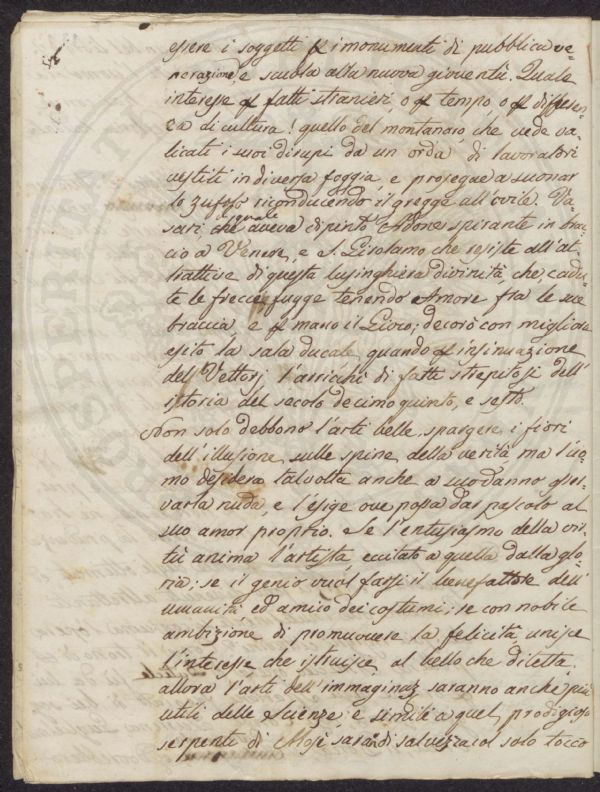 essere i soggetti p i monumenti di pubblica ve-
nerazione, e scuola alla nuova gioventù. Quale
interesse p fatti stranieri o p tempo, o p differen-
za di cultura! quello del montanaro che vede va-
licati i suoi dirupi da un orda di lavoratori
vestiti in diversa foggia e prosegue a suonar
lo zufolo riconducendo il gregge all'ovile. Va-
sari che quale aveva dipinto Adone spirante in brac-
cio a Venere, e S. Girolamo che resiste all'at-
trattive di questa lusinghiera divinità, che, cadu-
te le freccie fugge tenendo Amore fra le sue
braccia, e p mano il Gioco; decorò con migliore
esito la sala ducale, quando p insinuazione
del Vettorj l'arrichì di fatti strepitosi dell'
istoria del secolo decimoquinto, e sesto.
Non solo debbono l'arti belle spargere i fiori
dell'illusione sulle spine della verità, ma l'uo-
mo desidera talvolta anche a suo danno osser-
varla nuda, e l'esige ove possa dar pascolo al
suo amor proprio. Se l'entusiasmo della vir-
tù anima l'artista eccitato a quella dalla glo-
ria; se il genio vuol farsi il benefattore dell'
umanità ed amico dei costumi; se con nobile
ambizione di promuovere la felicità unisce
l'interesse che istruisce, al bello che diletta,
allora l'arti dell'immaginaz saranno anche più
utili delle Scienze, e simile a quel prodigioso
serpente di Mosè saran di salvezza col solo tocco